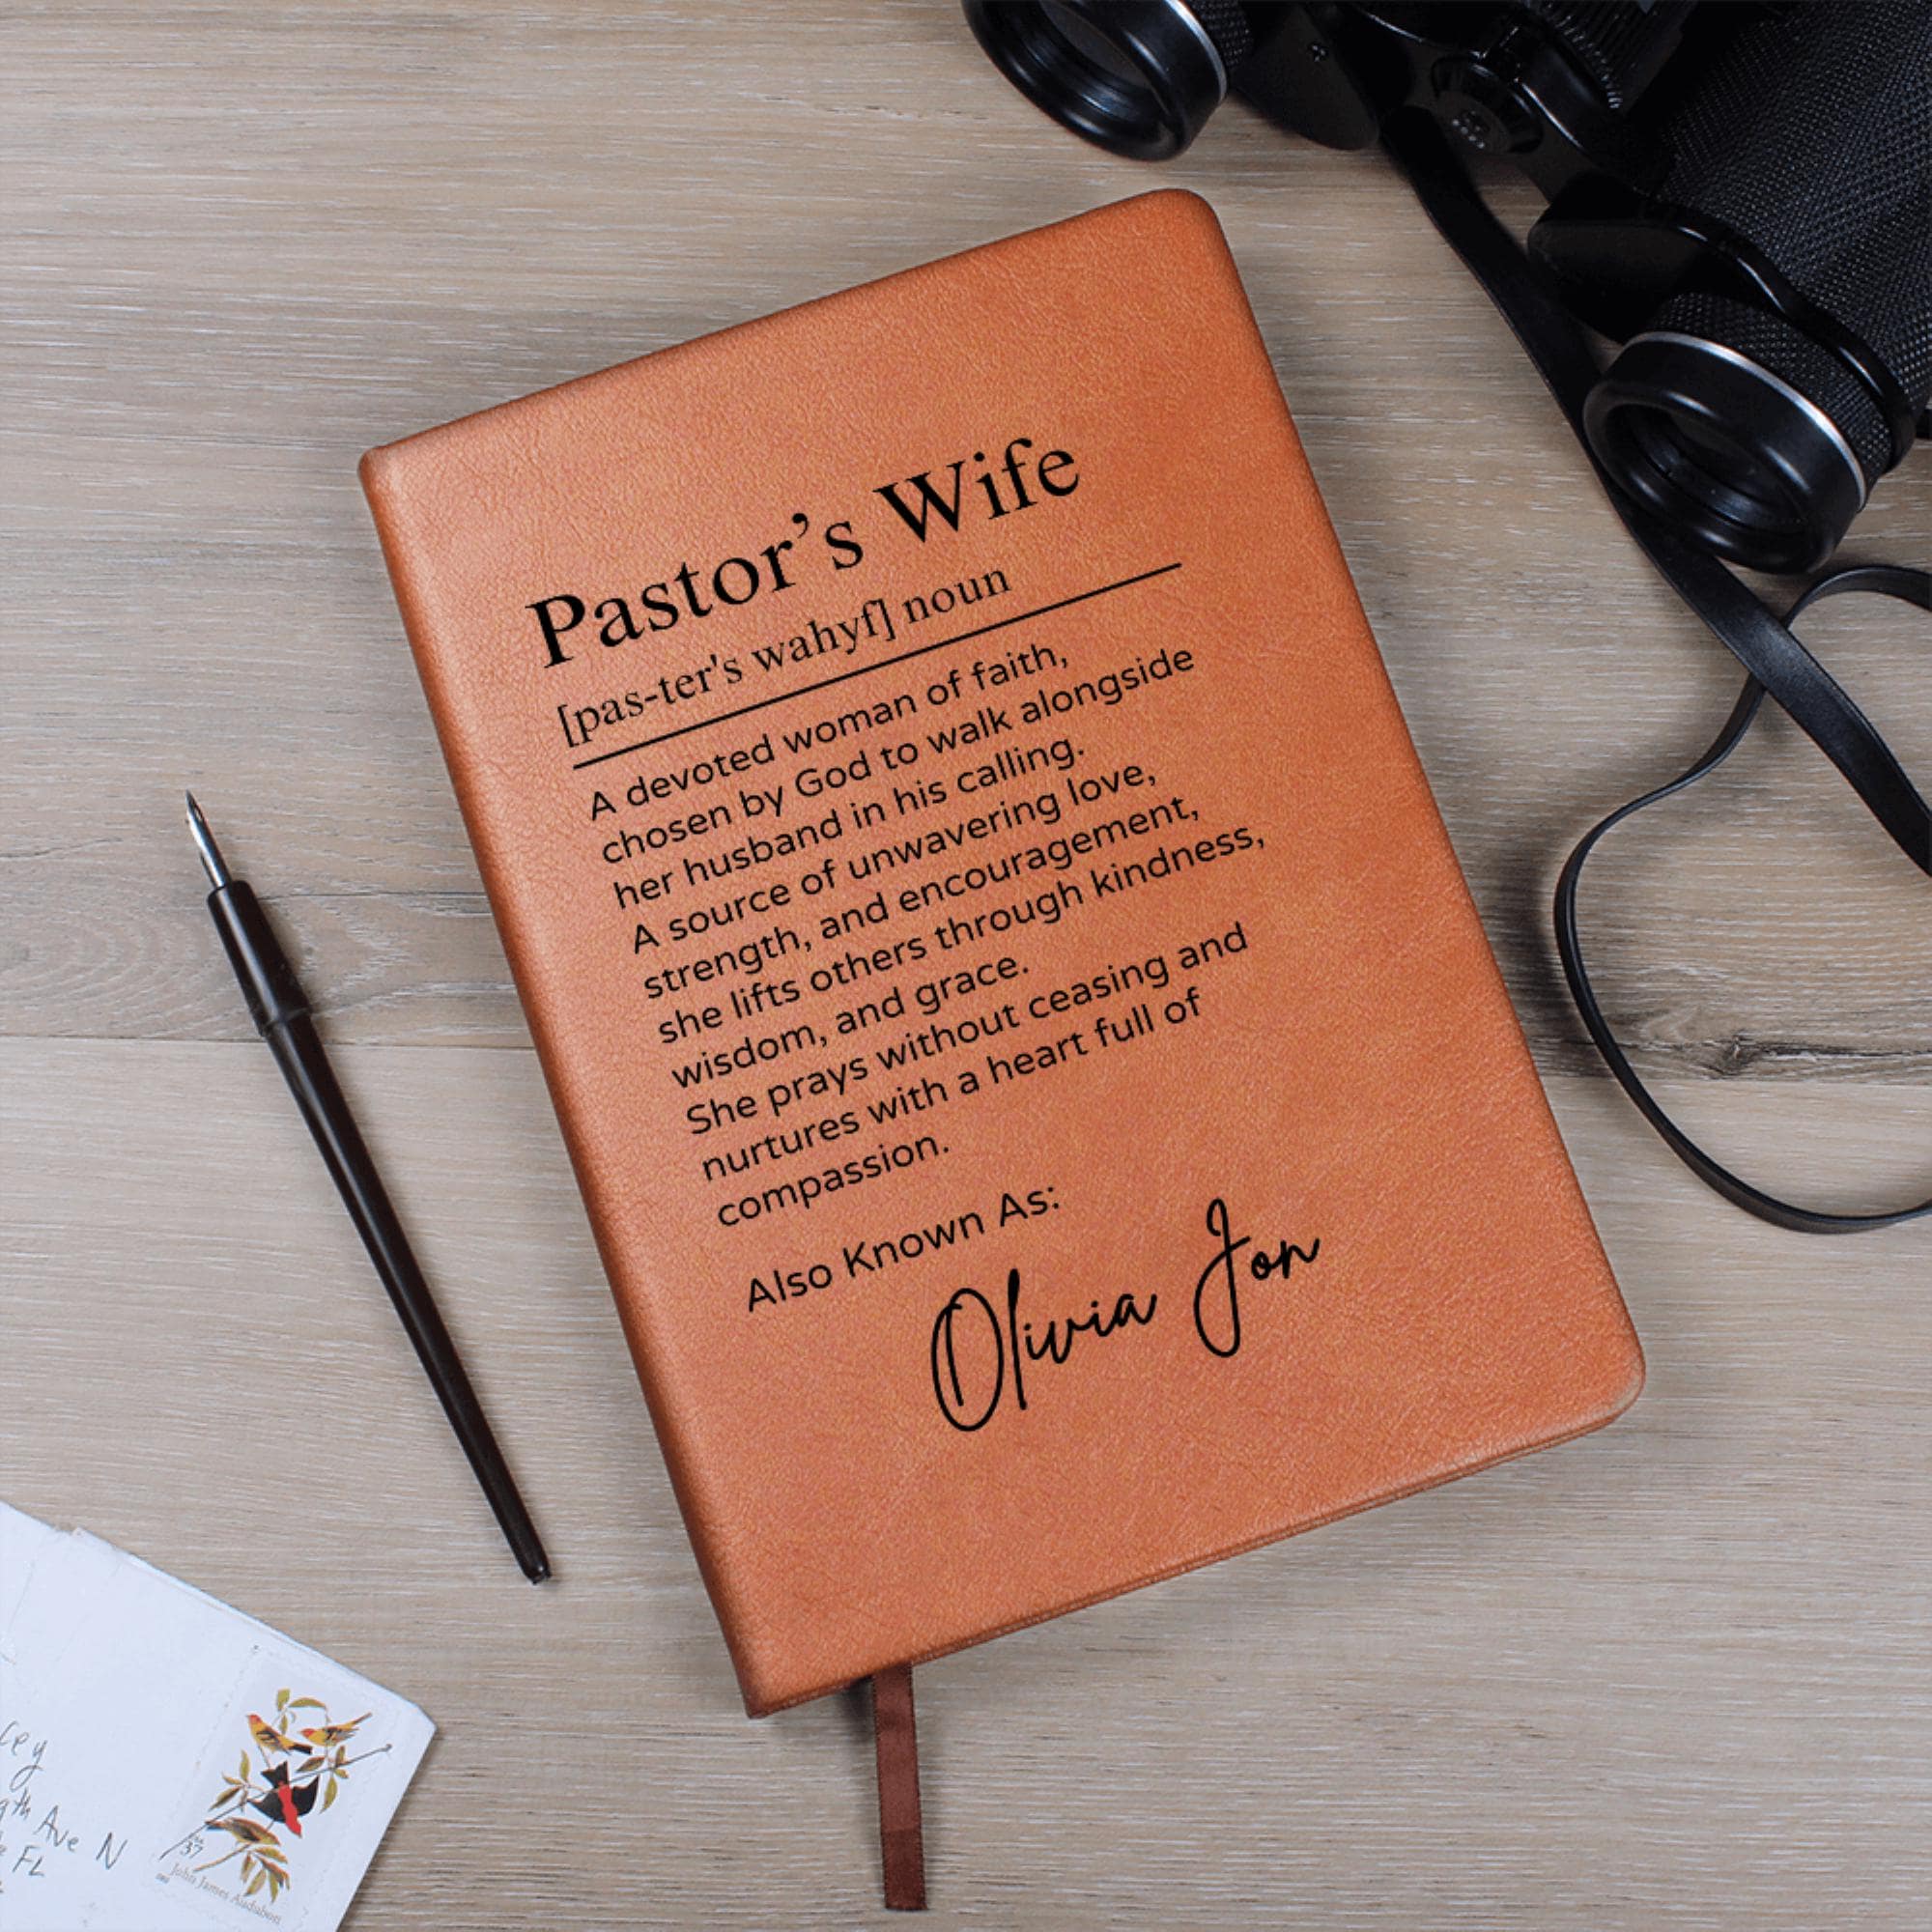 Pastor’s Wife
[pas-ter's wahyf] noun
A devoted woman of faith,
chosen by God to walk alongside
her husband in his calling.
A source of unwavering love,
strength, and encouragement,
she lifts others through kindness,
wisdom, and grace.
She prays without ceasing and
nurtures with a heart full of
compassion.
Also Known As:
Olivia Jon
Ave N
FL
37
John James Audubon